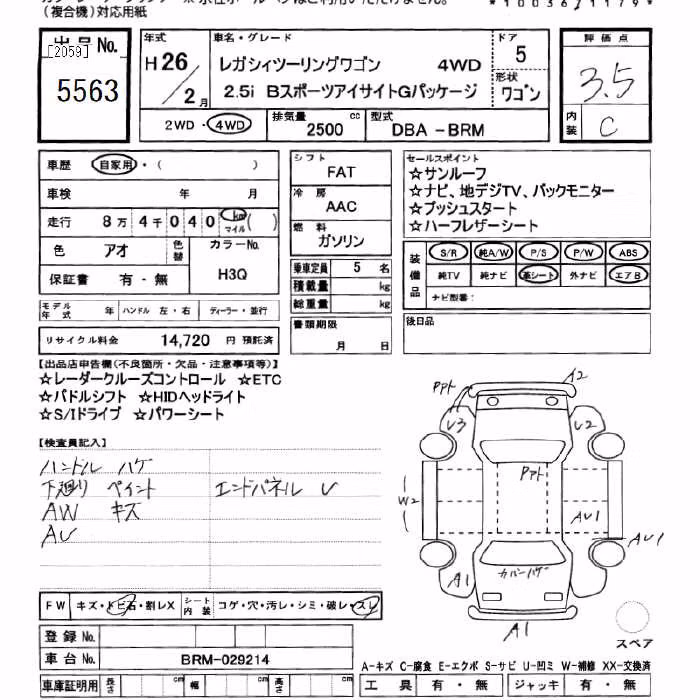 (複合機)対応用紙
*10036/1179*
出品 No.
[2059]
5563
年式
H26/2月
車名・グレード
レガシィツーリングワゴン 4WD
2.5i BスポーツアイサイトGパッケージ
ドア 5
形状 ワゴン
2WD・4WD
排気量 2500 cc
型式 DBA -BRM
評価点
3.5
内装 C
車歴 自家用・( )
車検 年 月
走行 8万 4千 0 4 0 km マイル ( )
色 アオ 色替 カラーNo. H3Q
保証書 有・無
モデル年式 年 ハンドル 左・右 ディーラー・並行
リサイクル料金 14,720 円 預託済
シフト
FAT
冷房
AAC
燃料
ガソリン
乗車定員 5 名
積載量 kg
総重量 kg
書類期限
月 日
セールスポイント
☆サンルーフ
☆ナビ、地デジTV、バックモニター
☆プッシュスタート
☆ハーフレザーシート
装備品
S/R 純A/W P/S P/W ABS
純TV 純ナビ 革シート 外ナビ エアB
ナビ型番:
後日品
【出品店申告欄(不良箇所・欠品・注意事項等)】
☆レーダークルーズコントロール ☆ETC
☆パドルシフト ☆HIDヘッドライト
☆S/Iドライブ ☆パワーシート
【検査員記入】
ハンドル ハゲ
下廻り ペイント エンドパネル U
AW キズ
AU
PPt A2
U3 U2
PPt
W2
AU1
AU1
カバーハゲ
A1
A1
スペア
FW キズ・トビ石・割レX シート内装 コゲ・穴・汚レ・シミ・破レ・スレ
登録 No.
車台 No. BRM-029214
車庫証明用 長さ cm 幅 cm 高さ cm
A-キズ C-腐食 E-エクボ S-サビ U-凹ミ W-補修 XX-交換済
工具 有・無 ジャッキ 有・無